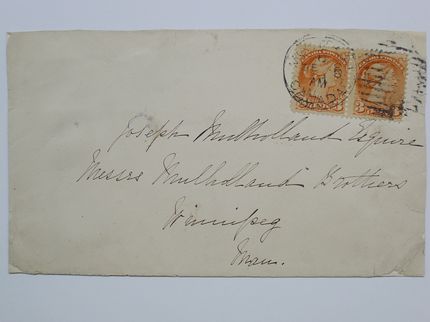 CANADA
Joseph Mulholland Esquire
Messrs Mulholland Brothers
Winnipeg
Man.